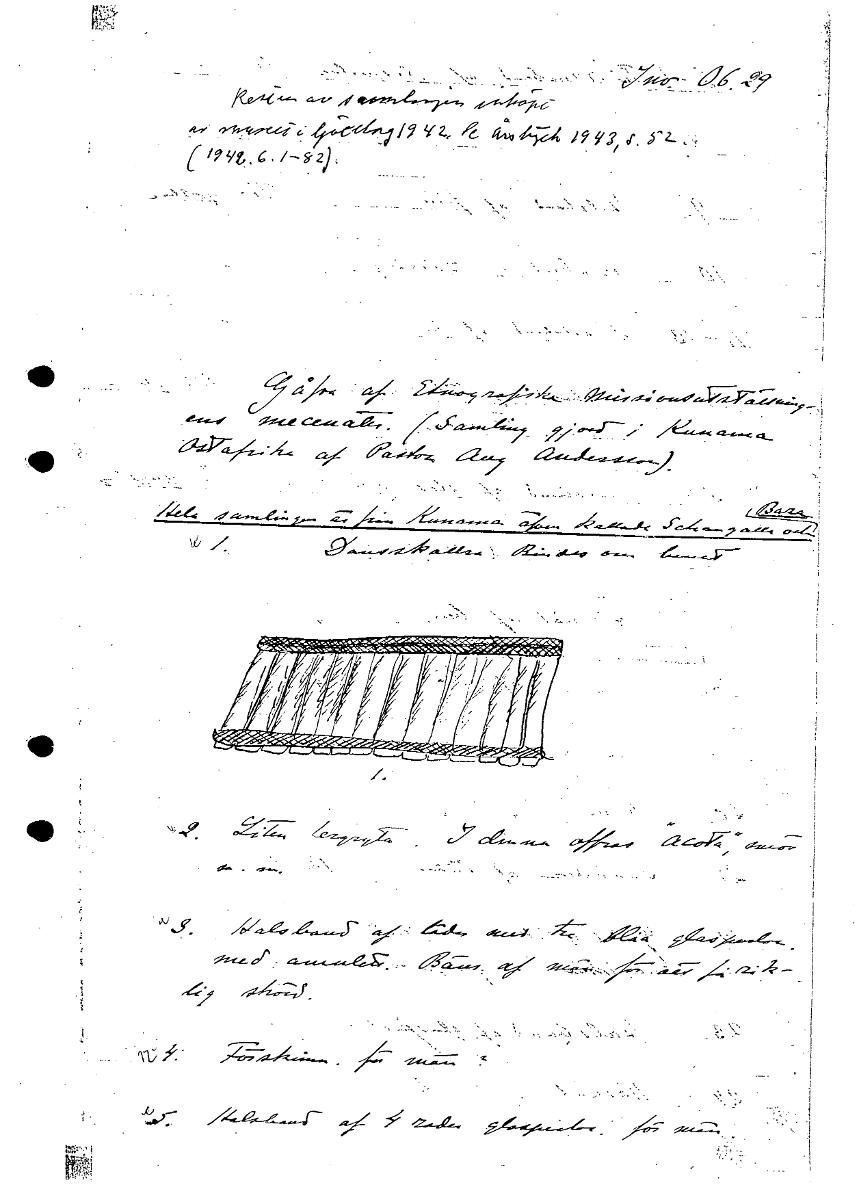 Inv. 06.29
Resten av samlingen inköpt
av museet i Göteborg 1942. Se årstryck 1943, s. 52.
(1942.6.1-82).
Gåfva af Etnografiska Missionsutställning-
ens mecenater. (Samling gjord i Kunama
Ostafrika af Pastor Aug Andersson).
Hela samlingen är från Kunama äfven kallade Schangalla och Baza
1. Dansskallra. Bindes om benet
1.
2. Liten lergryta. I denna offras "acota", smör
m. m.
3. Halsband af läder med tre blåa glasperlor.
med amulett. Bäres af män för att få rik-
lig skörd.
4. Förskinn för män?
5. Halsband af 4 rader glasperlor. för män.